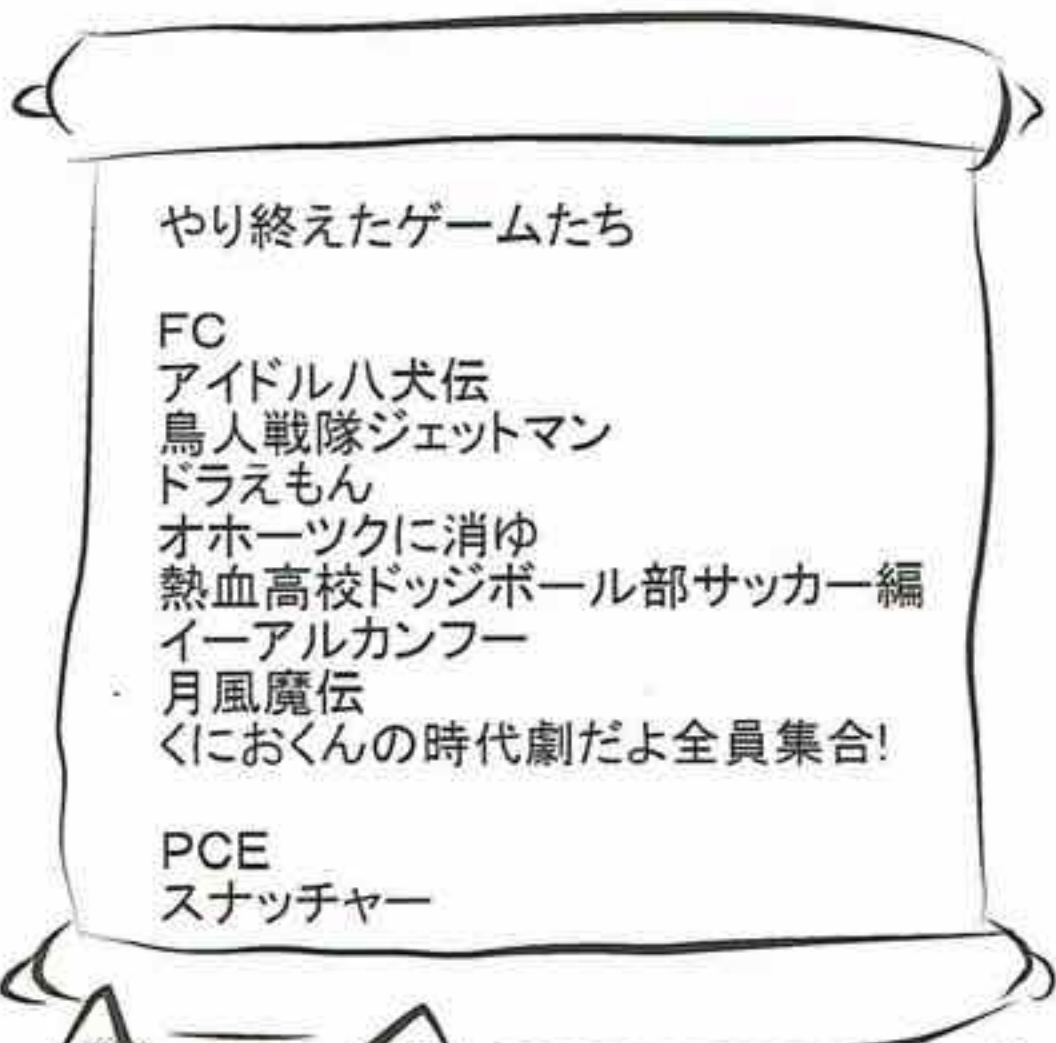 やり終えたゲームたち
FC
アイドル八犬伝
鳥人戦隊ジェットマン
ドラえもん
オホーツクに消ゆ
熱血高校ドッジボール部サッカー編
イーアルカンフー
月風魔伝
くにおくんの時代劇だよ全員集合!
PCE
スナッチャー